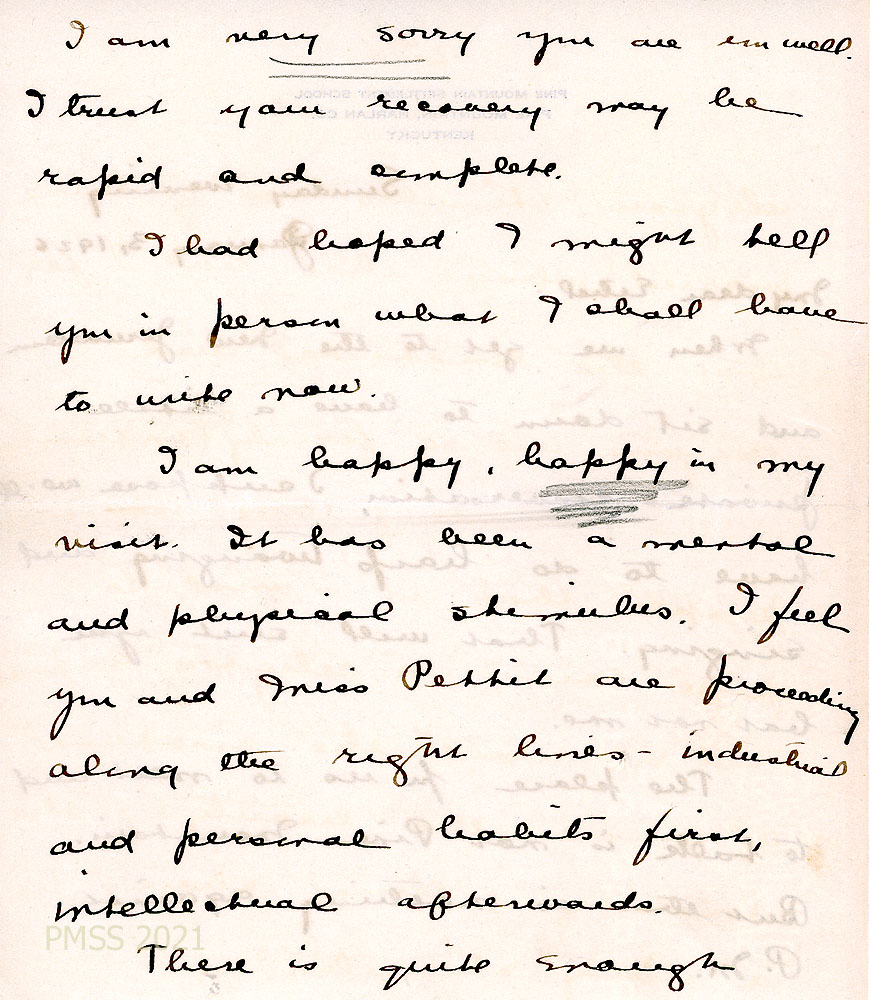 I am very sorry you are unwell.
I trust your recovery may be
rapid and complete.
I had hoped I might tell
you in person what I shall have
to write now.
I am happy, happy in my
visit. It has been a mental
and physical stimulus. I feel
you and Miss Pettit are proceeding
along the right lines - industrial
and personal habits first,
intellectual afterwards.
PMSS 2021
There is quite enough